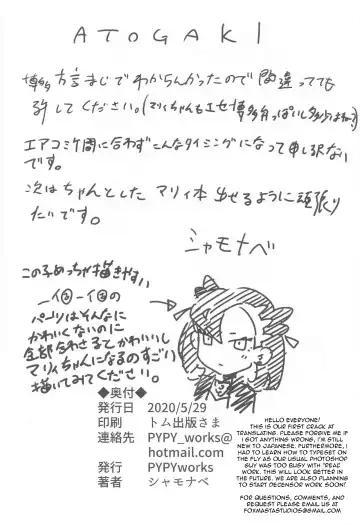 ATOGAKI
博多方言まじでわからんかったので間違ってても
許してください。(マリィちゃんもエセ博多弁っぽいし多少はね?)
エアコミケ間に合わずこんなタイミングになって申し訳ない
です。
次はちゃんとした マリィ本 出せるように頑張り
たいです。
シャモナベ
この子めっちゃ描きやすい
一個一個の
パーツはそんなに
かわいくないのに
全部合わさるとかわいいし
マリィちゃんになるのすごい
描いてみてください。
◆奥付◆
発行日 2020/5/29
印刷 トム出版さま
連絡先 PYPY_works@
hotmail.com
発行 PYPYworks
著者 シャモナベ
HELLO EVERYONE!
THIS IS OUR FIRST CRACK AT
TRANSLATING. PLEASE FORGIVE ME IF
I GOT ANYTHING WRONG, I'M STILL
NEW TO JAPANESE. FURTHERMORE, I
HAD TO LEARN HOW TO TYPESET ON
THE FLY AS OUR USUAL PHOTOSHOP
GUY WAS TOO BUSY WITH *REAL*
WORK. THIS WILL LOOK BETTER IN
THE FUTURE. WE ARE ALSO PLANNING TO
START DECENSOR WORK SOON!
FOR QUESTIONS, COMMENTS, AND
REQUESTS, PLEASE EMAIL US AT
FOXMASTASTUDIOS@GMAIL.COM